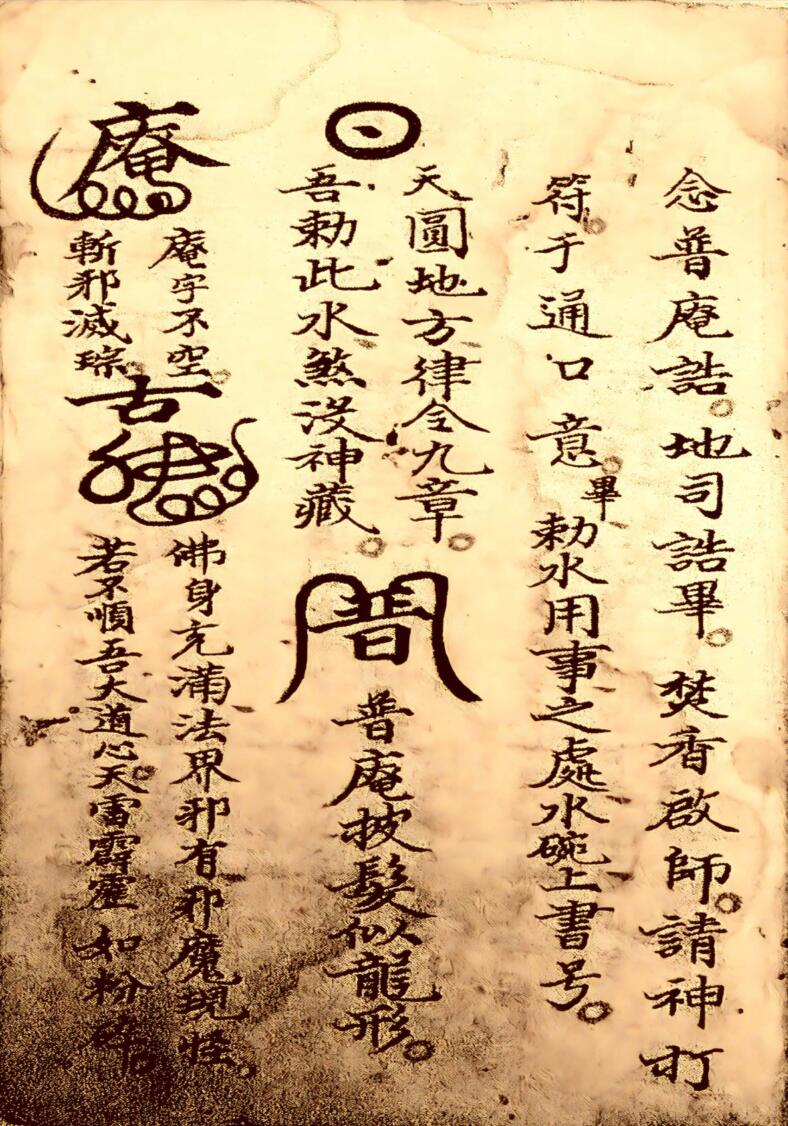 念普庵誥。地司誥畢。焚香啟師。請神打
符于通口意。畢勅水用事之處水碗上書号。
天圓地方律令九章。
吾勅此水煞没神藏。
普
普庵披髮似龍形。
庵
庵字不空。
斬邪滅琮
古
佛身充滿法界邪有邪魔現怪，
若不順吾大道心。天雷霹靂如粉碎。